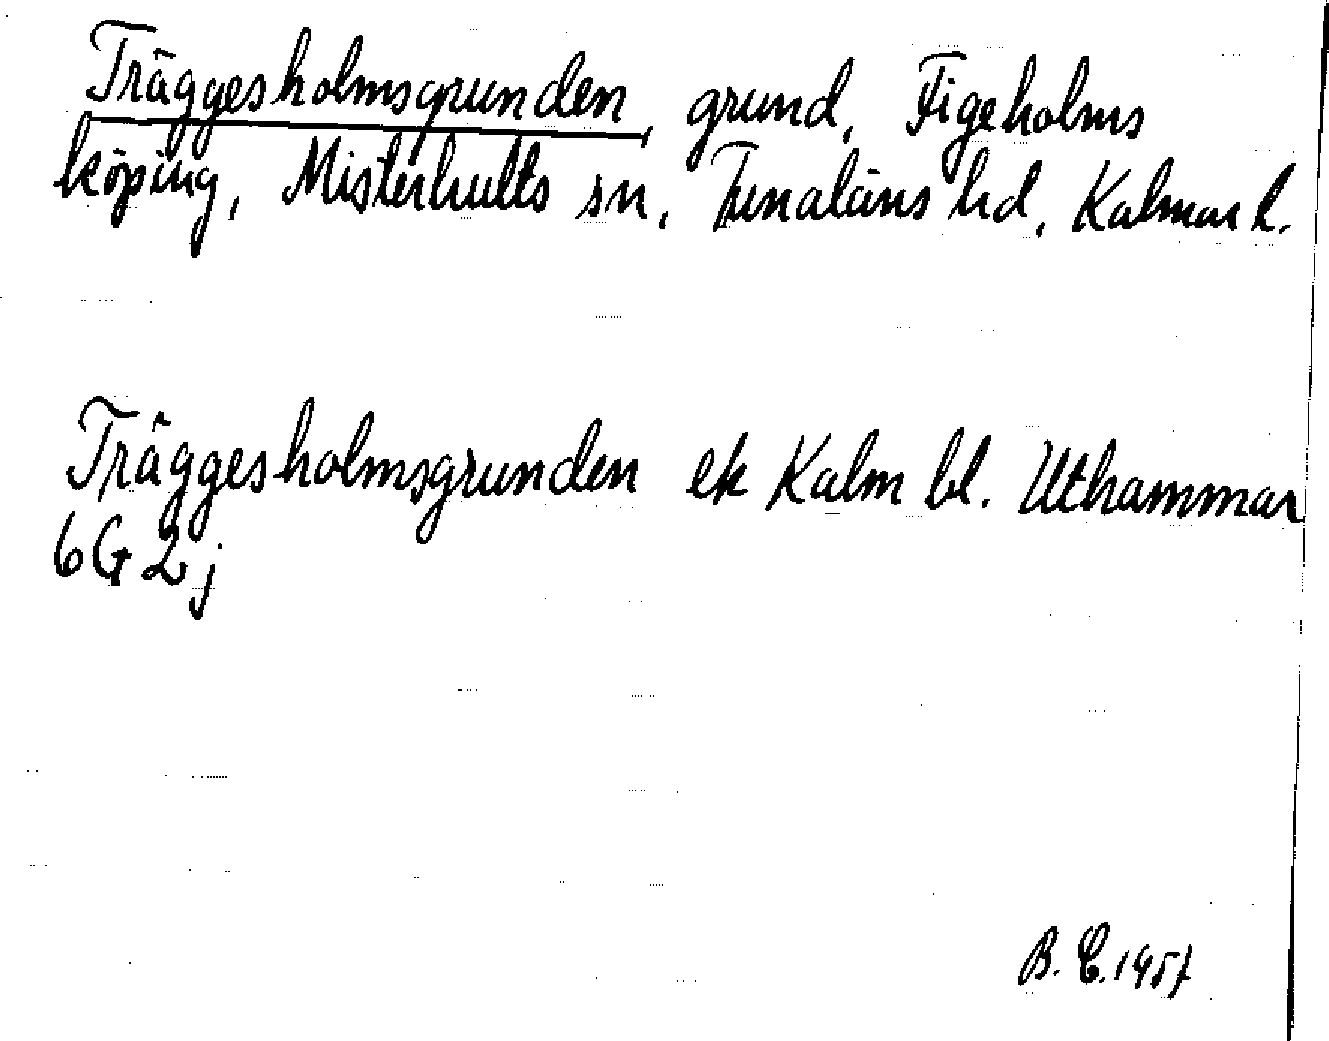 Träggesholmsgrunden, grund, Figeholms
köping, Misterhults sn, Tunaläns hd, Kalmar l.
Träggesholmsgrunden ek Kalm bl. Uthammar
6G2j
B. E. 1957